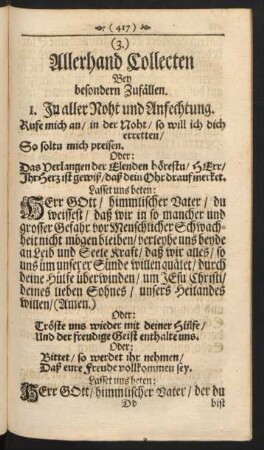 ( 417 )
(3.)
Allerhand Collecten
Bey
besondern Zufällen.
1. In aller Noht und Anfechtung.
Rufe mich an/ in der Noht/ so will ich dich
erretten/
So soltu mich preisen.
Oder:
Das Verlangen der Elenden hörestu/ HErr/
Ihr Herz ist gewiß/ daß dein Ohr drauf mercket.
Lasset uns beten:
HErr GOtt/ himmlischer Vater/ du
weissest/ daß wir in so mancher und
grosser Gefahr vor Menschlicher Schwach-
heit nicht mögen bleiben/ verleyhe uns beyde
an Leib und Seele Kraft/ daß wir alles/ so
uns üm unser er Sünde willen quälet/ durch
deine Hülfe überwinden/ um JEsu Christi/
deines lieben Sohnes/ unsers Heilandes
willen/ (Amen.)
Oder:
Tröste uns wieder mit deiner Hülfe/
Und der freudige Geist enthalte uns.
Oder:
Bittet/ so werdet ihr nehmen/
Daß eure Freude vollkommen sey.
Lasset uns beten:
HErr GOtt/ himmlischer Vater/ der du
Dd bist